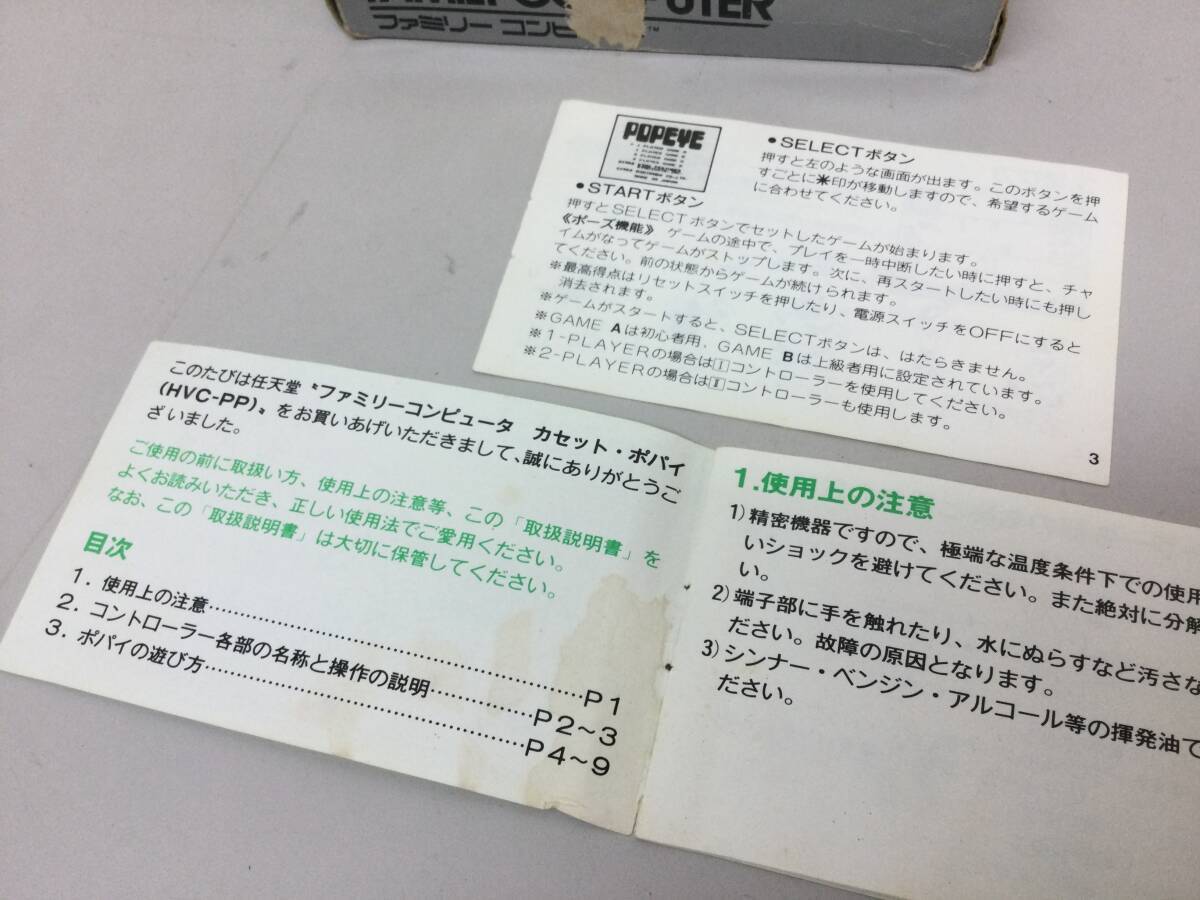 FAMILY COMPUTER
ファミリー コンピ
TM
POPEYE
1 PLAYER GAME A
1 PLAYER GAME B
2 PLAYER GAME A
2 PLAYER GAME B
●SELECTボタン
押すと左のような画面が出ます。このボタンを押
すごとに✳印が移動しますので、希望するゲーム
に合わせてください。
●STARTボタン
押すとSELECTボタンでセットしたゲームが始まります。
《ポーズ機能》 ゲームの途中で、プレイを一時中断したい時に押すと、チャ
イムがなってゲームがストップします。次に、再スタートしたい時にも押し
てください。前の状態からゲームが続けられます。
※最高得点はリセットスイッチを押したり、電源スイッチをOFFにすると
消去されます。
※ゲームがスタートすると、SELECTボタンは、はたらきません。
※GAME Aは初心者用, GAME Bは上級者用に設定されています。
※1-PLAYERの場合はⅠコントローラーを使用してください。
※2-PLAYERの場合はⅡコントローラーも使用します。
3
このたびは任天堂〝ファミリーコンピュータ カセット・ポパイ
(HVC-PP)〟をお買いあげいただきまして、誠にありがとうご
ざいました。
ご使用の前に取扱い方、使用上の注意等、この「取扱説明書」を
よくお読みいただき、正しい使用法でご愛用ください。
なお、この「取扱説明書」は大切に保管してください。
目次
1. 使用上の注意……P1
2. コントローラー各部の名称と操作の説明……P2〜3
3. ポパイの遊び方……P4〜9
1.使用上の注意
1)精密機器ですので、極端な温度条件下での使用
いショックを避けてください。また絶対に分解
い。
2)端子部に手を触れたり、水にぬらすなど汚さな
ださい。故障の原因となります。
3)シンナー・ベンジン・アルコール等の揮発油で
ださい。